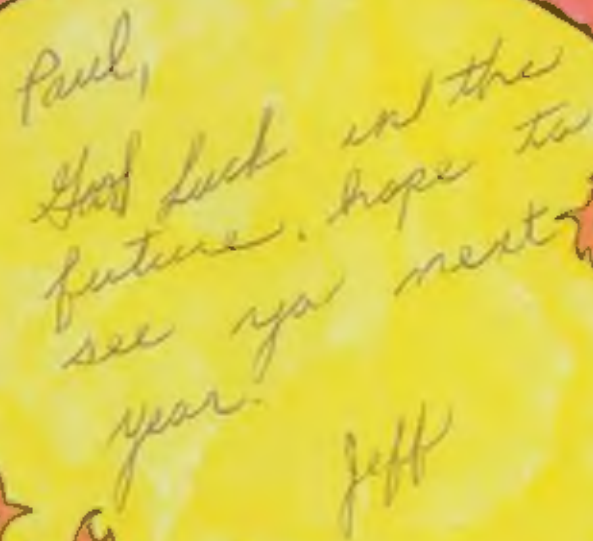 Paul,
Good Luck in the
future. hope to
see ya next
year.
Jeff